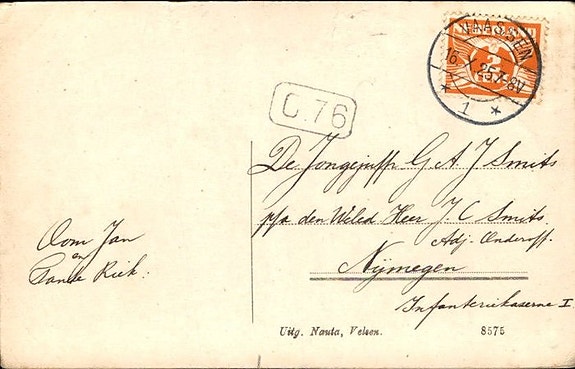 VAASSEN
16.X.25.7-8V
* 1 *
NEDERLAND
2
C.76
De Jongejuffr G A J Smits
p/a den Weled Heer J. C Smits.
Adj. Onderoff.
Nijmegen
Infanteriekaserne I
Oom Jan
en
Tante Riek.
Uitg. Nauta, Velsen.
8575